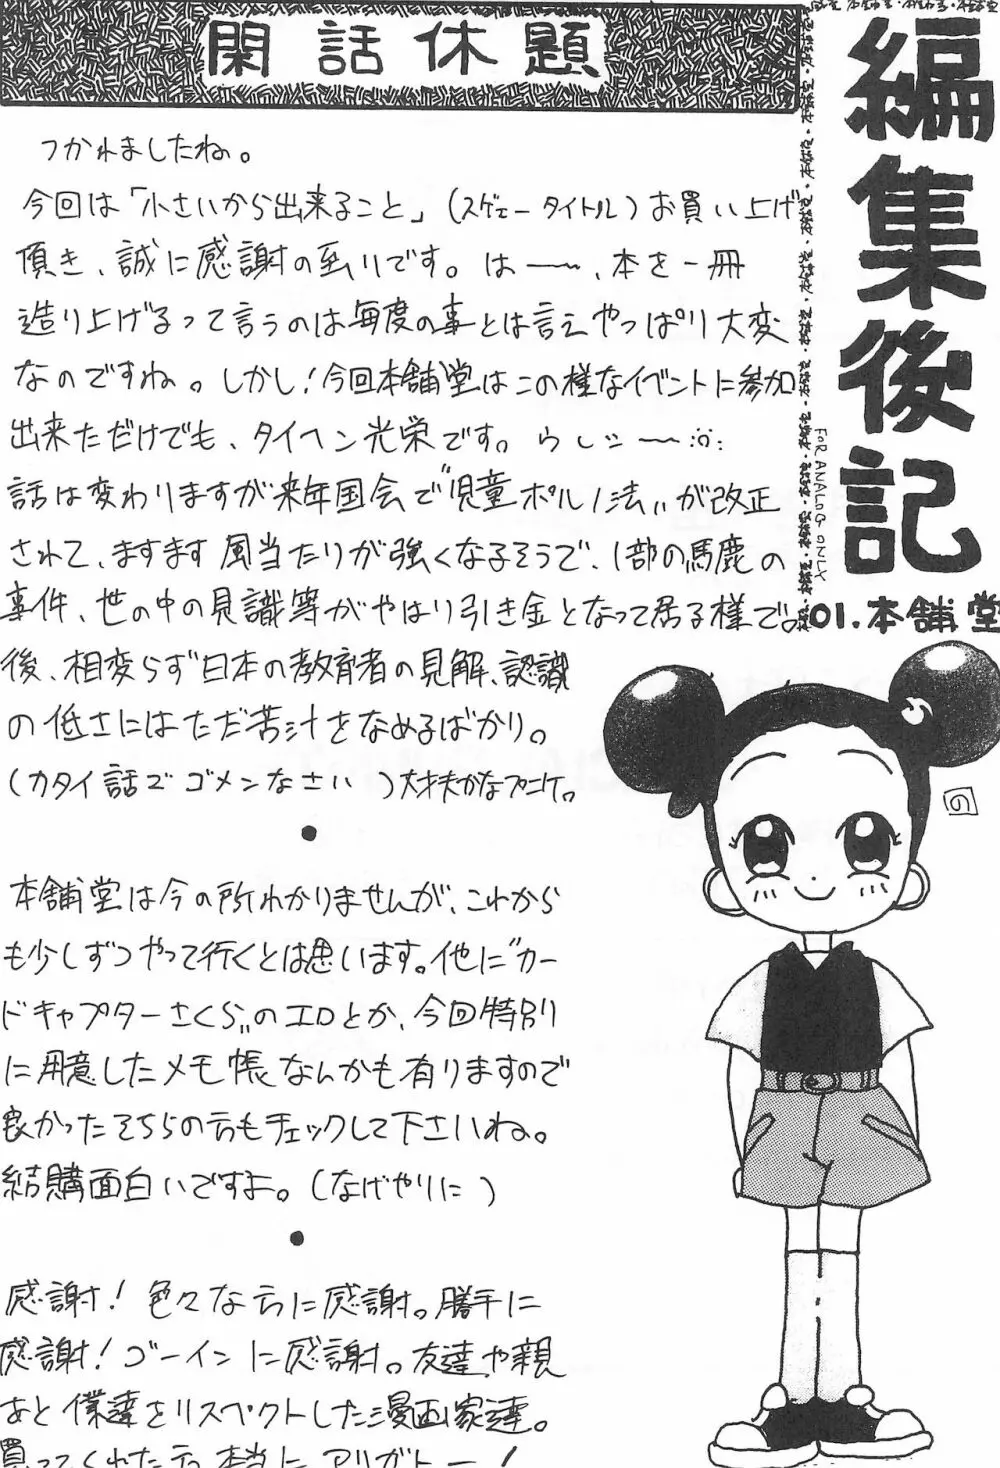 編集後記
FOR ANALOG ONLY
01.本舗堂
閑話休題
つかれましたね。
今回は「小さいから出来ること」(スゲェータイトル)お買い上げ
頂き、誠に感謝の至りです。は〜、本を一冊
造り上げるって言うのは毎度の事とは言えやっぱり大変
なのですね。しかし!今回本舗堂はこの様なイベントに参加
出来ただけでも、タイヘン光栄です。うしシ〜
話は変わりますが来年国会で"児童ポルノ法"が改正
されて、ますます風当たりが強くなるそうで、1部の馬鹿の
事件、世の中の見識等がやはり引き金となって居る様で。
後、相変らず日本の教育者の見解、認識
の低さにはただ苦汁をなめるばかり。
(カタイ話でゴメンなさい)大丈夫かなプニケ。
本舗堂は今の所わかりませんが、これから
も少しずつやって行くとは思います。他に"カー
ドキャプターさくら"のエロとか、今回特別
に用意したメモ帳なんかも有りますので
良かったそちらの方もチェックして下さいね。
結購面白いですよ。(なげやりに)
感謝!色々な方に感謝。勝手に
感謝!ゴーインに感謝。友達や親
あと僕達をリスペクトした漫画家達。
買ってくれた方本当にアリガトー!
の